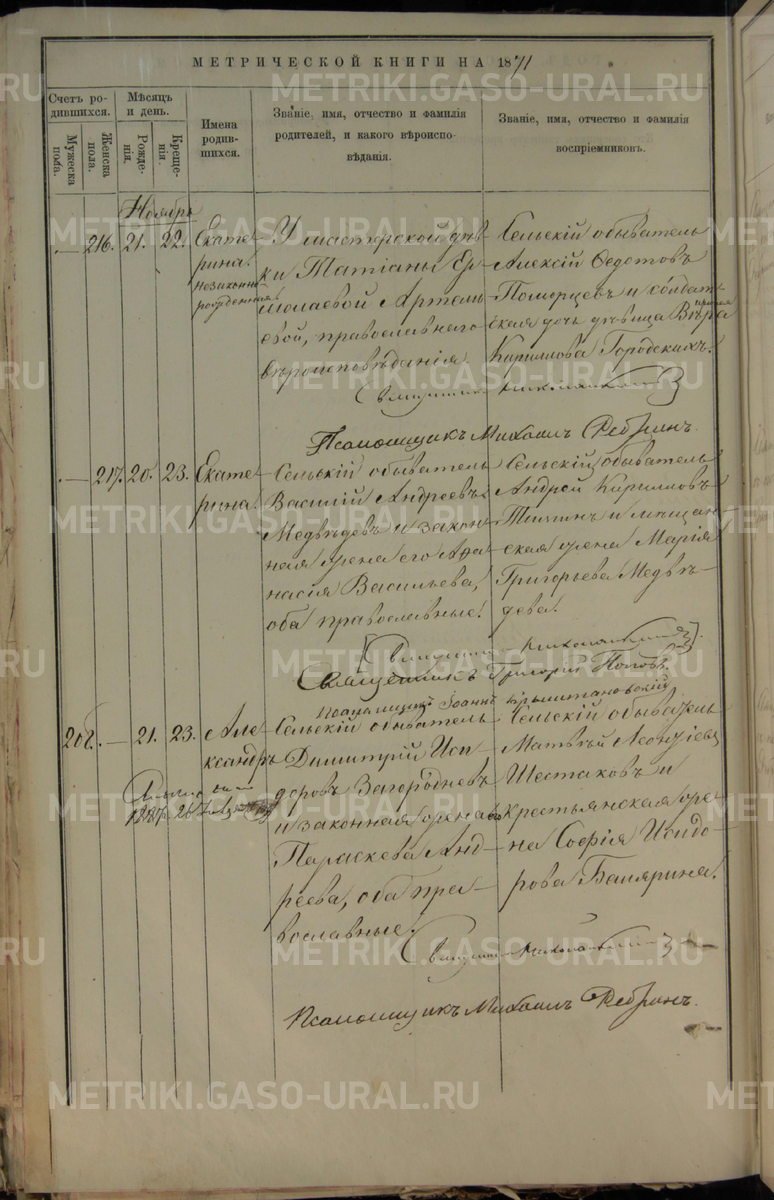 МЕТРИЧЕСКОЙ КНИГИ НА 1871
Счетъ ро-
дившихся.
Мужеска
пола.
Женска
пола.
Мѣсяцъ
и день.
Рожде-
нія.
Креще-
нія.
Имена
родив-
шихся.
Званіе, имя, отчество и фамилія
родителей, и какого вѣроиспо-
вѣданія.
Званіе, имя, отчество и фамилія
воспріемниковъ.
Ноябрь
— 216. 21. 22.
Екате-
рина.
незаконно-
рожденная.
У мастерской дѣв-
ки Татіаны Ер-
молаевой Артемь-
евой, православнаго
вѣроисповѣданія
Сельскій обыватель
Алексій Ѳедотовъ
Поморцевъ и солдат-
ская дочь дѣвица Вѣра
Кирилова Городскихъ.
Псаломщикъ Михаилъ Ребринъ.
— 217. 20. 23.
Екате-
рина.
Сельскій обыватель
Василій Андреевъ
Медвѣдевъ и закон-
ная жена его Аѳа-
насія Васильева,
оба православные.
Сельскій обыватель
Андрей Кириловъ
и мѣщан-
ская жена Марія
Григорьева Медвѣ-
дева.
Священникъ Григорій Поповъ.
Псаломщикъ Іоаннъ
— 21. 23.
Але-
ксандръ
1887 26
Сельскій обыватель
Димитрій Иси-
доровъ Загородневъ
и законная жена его
Параскева Анд-
реева, оба пра-
вославные.
Сельскій обыватель
Матвѣй Леонтіевъ
Шестаковъ и
крестьянская же-
на Софія Исидо-
рова Баярина.
Псаломщикъ Михаилъ Ребринъ.
METRIKI.GASO-URAL.RU